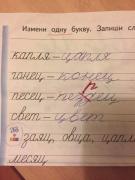 Измени одну букву. Запиши сл
капля – цапля
гонец – конец
песец –
свет – цвет
заяц, овца, цапл
месяц